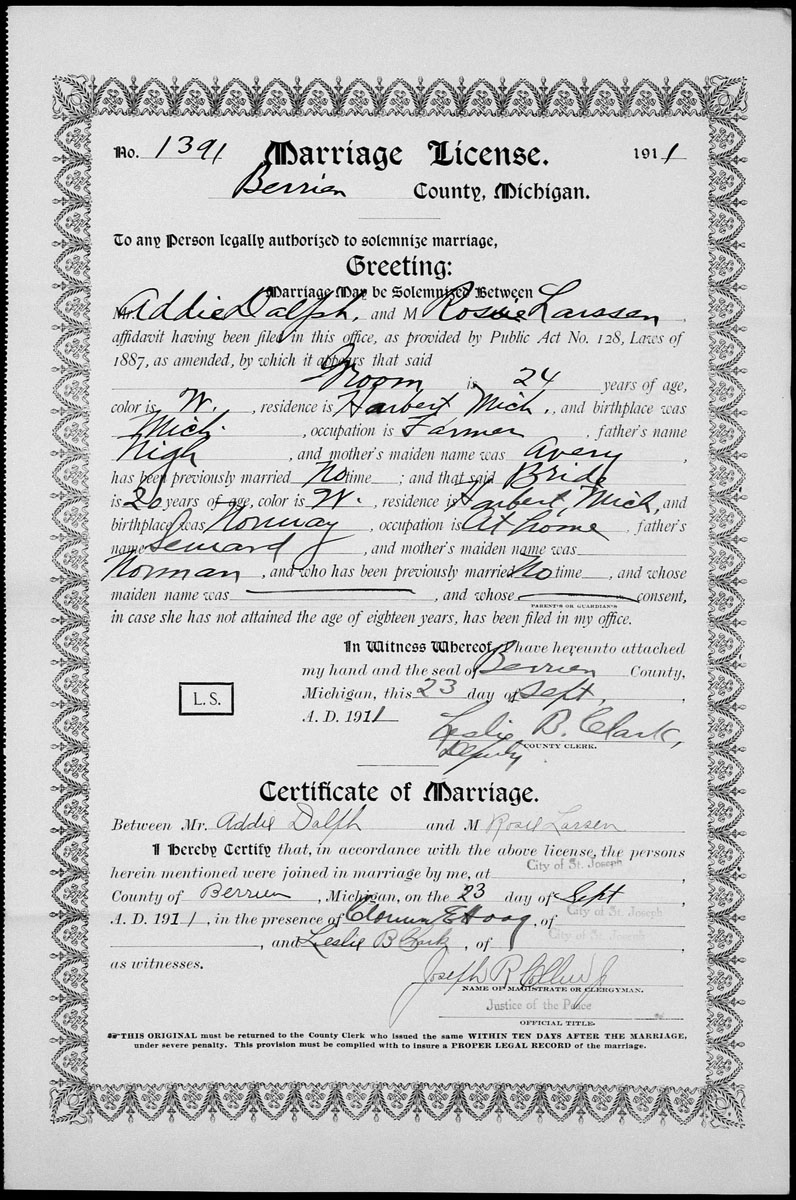 No. 1391 Marriage License. 1911
Berrien County, Michigan.
To any Person legally authorized to solemnize marriage,
Greeting:
Marriage May be Solemnized Between
Mr. Addie Dalph, and M Rosie Larssen,
affidavit having been filed in this office, as provided by Public Act No. 128, Laws of
1887, as amended, by which it appears that said
Groom is 24 years of age,
color is W., residence is Harbert Mich., and birthplace was
Mich., occupation is Farmer, father's name
High, and mother's maiden name was Avery,
has been previously married No time; and that said Bride
is 20 years of age, color is W., residence is Harbert, Mich, and
birthplace was Norway, occupation is At home, father's
name, and mother's maiden name was
Norman, and who has been previously married No time, and whose
maiden name was, and whose consent,
PARENT'S OR GUARDIAN'S
in case she has not attained the age of eighteen years, has been filed in my office.
In Witness Whereof, I have hereunto attached
my hand and the seal of Berrien County,
L.S.
Michigan, this 23 day of Sept.,
A. D. 1911
Leslie B. Clark,
Deputy COUNTY CLERK.
Certificate of Marriage.
Between Mr. Addie Dalph and M Rosie Larsen
I Hereby Certify that, in accordance with the above license, the persons
herein mentioned were joined in marriage by me, at City of St. Joseph,
County of Berrien, Michigan, on the 23 day of Sept
A. D. 1911, in the presence of, of City of St. Joseph
, and Leslie B Clark, of City of St. Joseph,
as witnesses.
Joseph R
NAME OF MAGISTRATE OR CLERGYMAN.
Justice of the Peace
OFFICIAL TITLE.
THIS ORIGINAL must be returned to the County Clerk who issued the same WITHIN TEN DAYS AFTER THE MARRIAGE,
under severe penalty. This provision must be complied with to insure a PROPER LEGAL RECORD of the marriage.